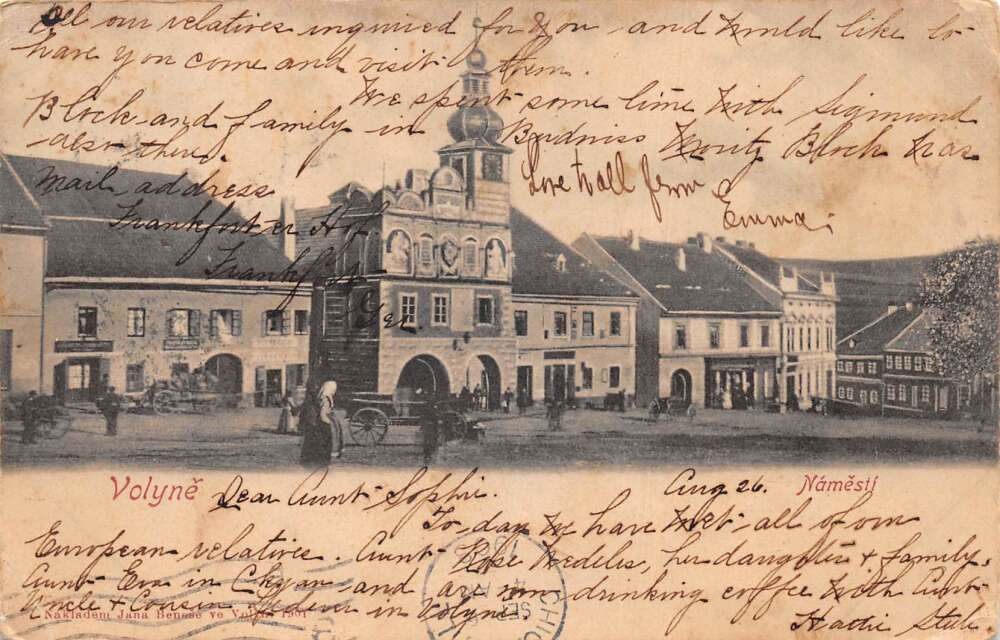 All our relatives inquired for you and would like to
have you come and visit them.
We spent some time with Sigmund
Block and family in Budwiss Moritz Block was
also there.
Love to all from
Emma.
Mail address
Frankforter Hof
Frankfort
Ger.
Volyně
Náměstí
Dear Aunt Sophie.
Aug 26.
To day we have met all of our
European relatives. Aunt Rose Wedeles, her daughter + family,
Aunt Eva in Ckyan and are now drinking coffee with Aunt
Uncle + Cousin in Volyne.
Hattie
Nakladem Jana Beneše ve Volyni 1901
CHIC
SEP